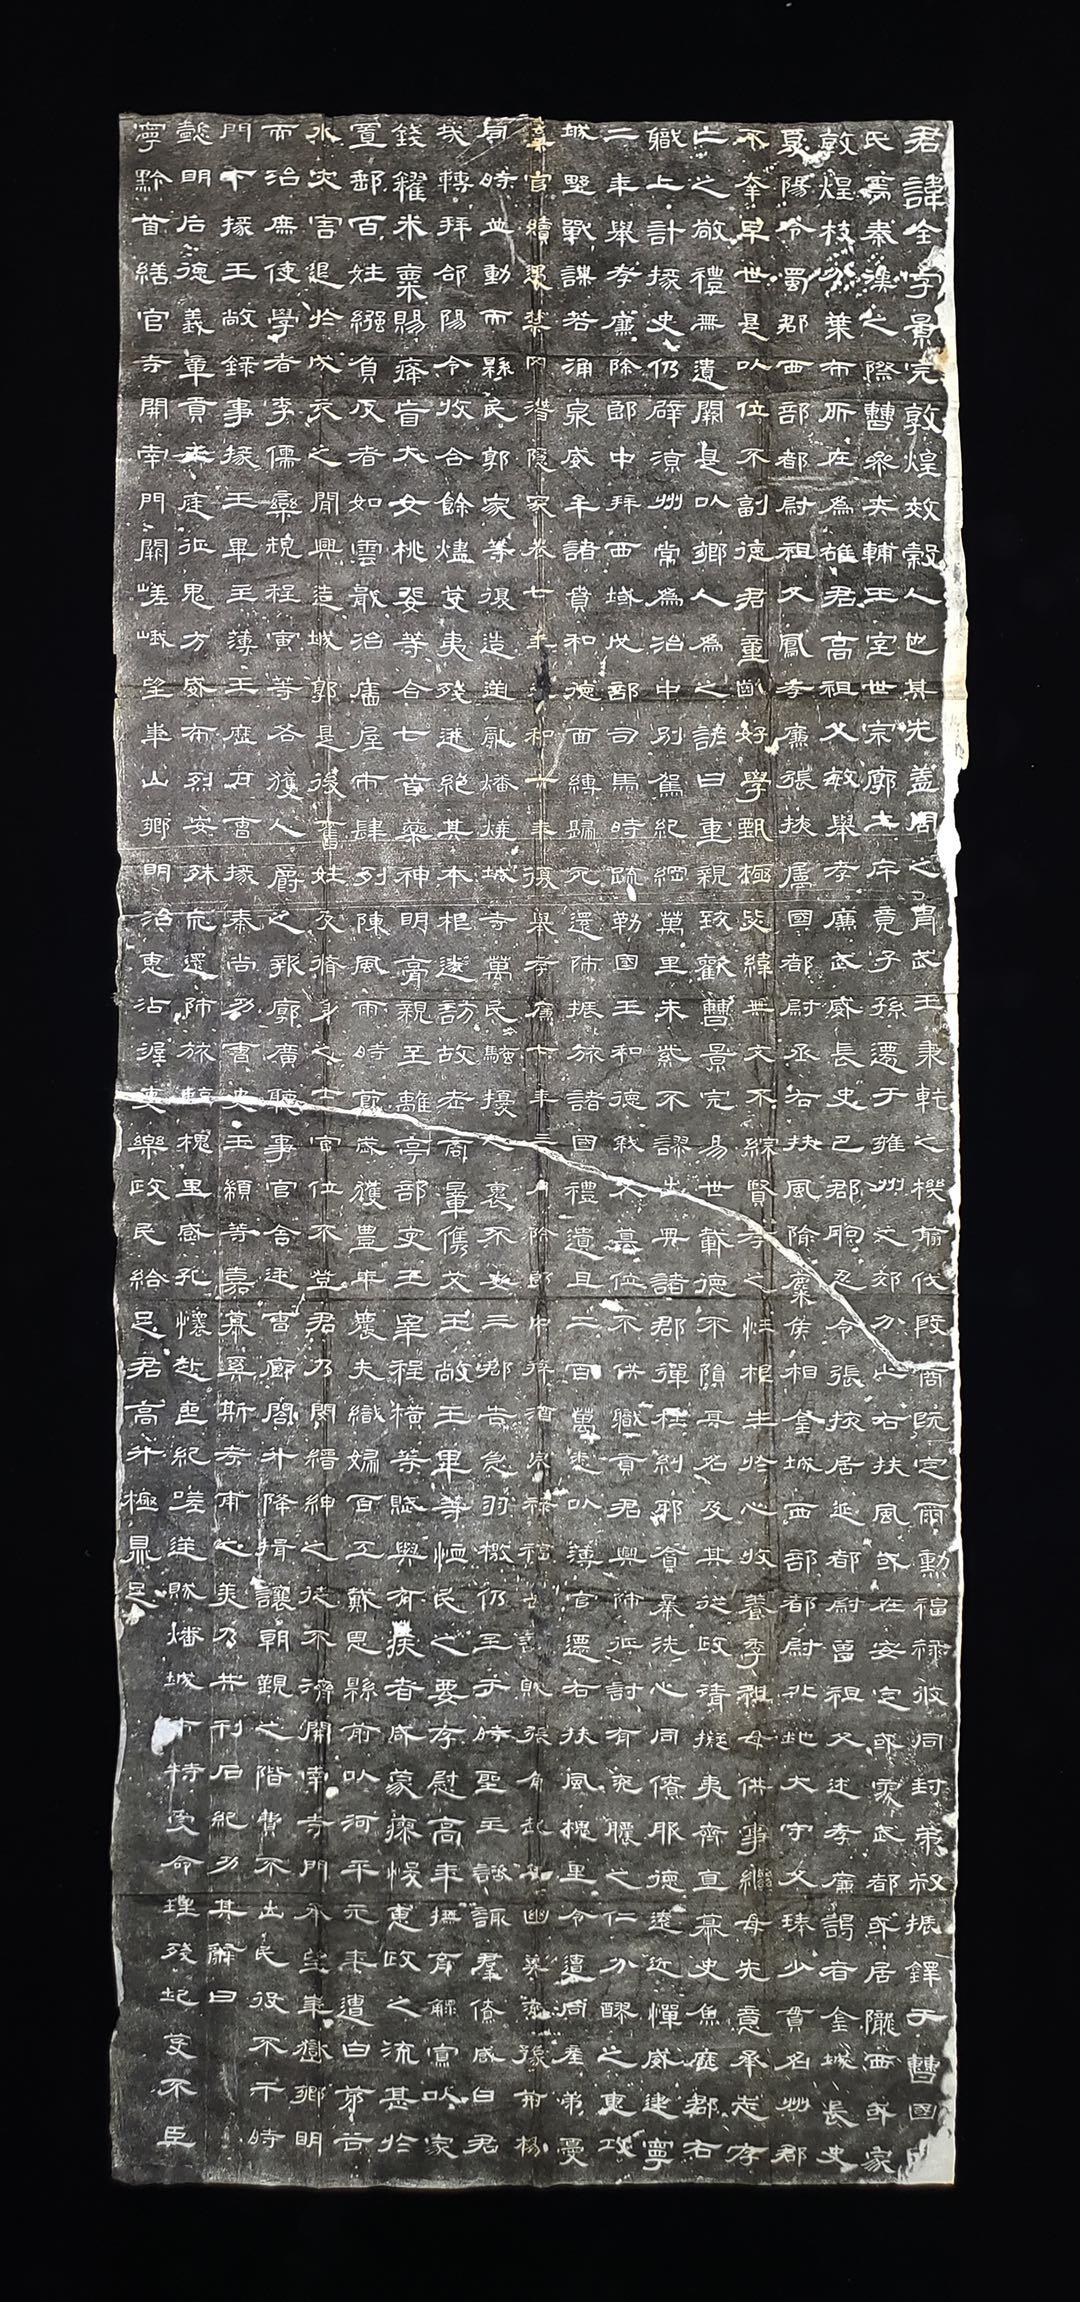 君諱全字景完敦煌效穀人也其先蓋周之胄武王秉乾之機翦伐殷商既定爾勳福祿攸同封弟叔振鐸于曹國
氏焉秦漢之際曹參夾輔王室世宗廓土斥竟子孫遷于雍州之郊分止右扶風或在安定或處武都或居隴西或家
敦煌枝分葉布所在為雄君高祖父敏舉孝廉武威長史巴郡朐忍令張掖居延都尉曾祖父述孝廉謁者金城長史
夏陽令蜀郡西部都尉祖父鳳孝廉張掖屬國都尉丞右扶風隃麋侯相金城西部都尉北地大守父琫少貫名州郡
不幸早世是以位不副德君童齔好學甄極毖緯無文不綜賢孝之性根生於心收養季祖母供事繼母先意承志存
亡之敬禮無遺闕是以鄉人為之諺曰重親致歡曹景完易世載德不隕其名及其從政清擬夷齊直慕史魚歷郡右
職上計掾史仍辟涼州常為治中別駕紀綱萬里朱紫不謬出典諸郡彈枉糾邪貪暴洗心同僚服德遠近憚威建寧
二年舉孝廉除郎中拜西域戊部司馬時疏勒國王和德弒父篡位不供職貢君興師征討有兗膿之仁分醪之惠攻
城野戰謀若涌泉威牟諸賁和德面縛歸死還師振旅諸國禮遺且二百萬悉以薄官遷右扶風槐里令遭同產弟憂
棄官續遇禁网潛隱家巷七年光和六年復舉孝廉七年三月除郎中拜酒泉祿福長訞賊張角起兵幽冀兗豫荊楊
同時並動而縣民郭家等復造逆亂燔燒城寺萬民騷擾人裹不安三郡告急羽檄仍至于時聖主諮諏群僚咸曰君
哉轉拜郃陽令收合餘燼芟夷殘迸絕其本根遂訪故老商量儁艾王敞王畢等恤民之要存慰高年撫育鰥寡以家
錢糴米粟賜癃盲大女桃婓等合七首藥神明膏親至離亭部吏王宰程橫等賦與有疾者咸蒙瘳悛惠政之流甚於
置郵百姓繦負反者如雲戢治廧屋市肆列陳風雨時節歲獲豐年農夫織婦百工戴恩縣前以河平元年遭白茅谷
水灾害退於戊亥之間興造城郭是後舊姓及脩身之士官位不登君乃閔縉紳之徒不濟開南寺門承望華嶽鄉明
而治庶使學者李儒欒規程寅等各獲人爵之報廓廣聽事官舍廷曹廊閣升降揖讓朝覲之階費不出民役不干時
門下掾王敞錄事掾王畢主薄王歷戶曹掾秦尚功曹史王顓等嘉慕奚斯考甫之美乃共刊石紀功其辭曰
懿明后德義章貢王庭征鬼方威布烈安殊荒還師旅臨槐里感孔懷赴喪紀嗟逆賊燔城市特受命理殘圮芟不臣
寧黔首繕官寺開南門闕嵯峨望華山鄉明治惠沾渥吏樂政民給足君高升極鼎足